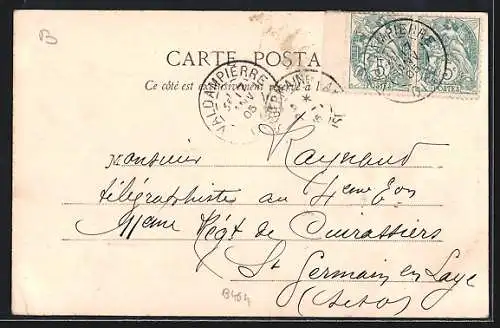 B
CARTE POSTA
Ce côté est exclusivement réservé à l'a
VALDAMPIERRE
JANV
05
5c 5c
POSTES
Monsieur Raynaud
télégraphiste au 4eme Eon
11eme Régt de Cuirassiers
St Germain en Laye
(Set O)
B404